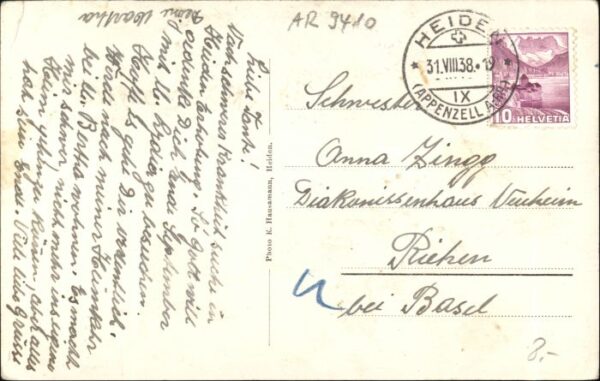 AR 9410
HEIDEN
31.VIII.38.-19
IX
(APPENZELL A.RH.)
10 HELVETIA
Liebe Tante!
Nach schwerer Krankheit suche in
Heiden Erholung. So Gott will
gedenke Dich Ende September
mit M. Lydia zu besuchen.
Hoffe Es geht Dir ordentlich.
Werde nach meiner Heimkehr
bei M. Bertha wohnen. Es macht
mir schwer nicht mehr ins eigene
Heim gehen zu können, aber alles
hat sein Ende. Viele liebe Grüsse
Deine Martha
Photo E. Hausamann, Heiden.
Schwester
Anna Zingg
Diakonissenhaus Neuheim
Riehen
bei Basel
8.-